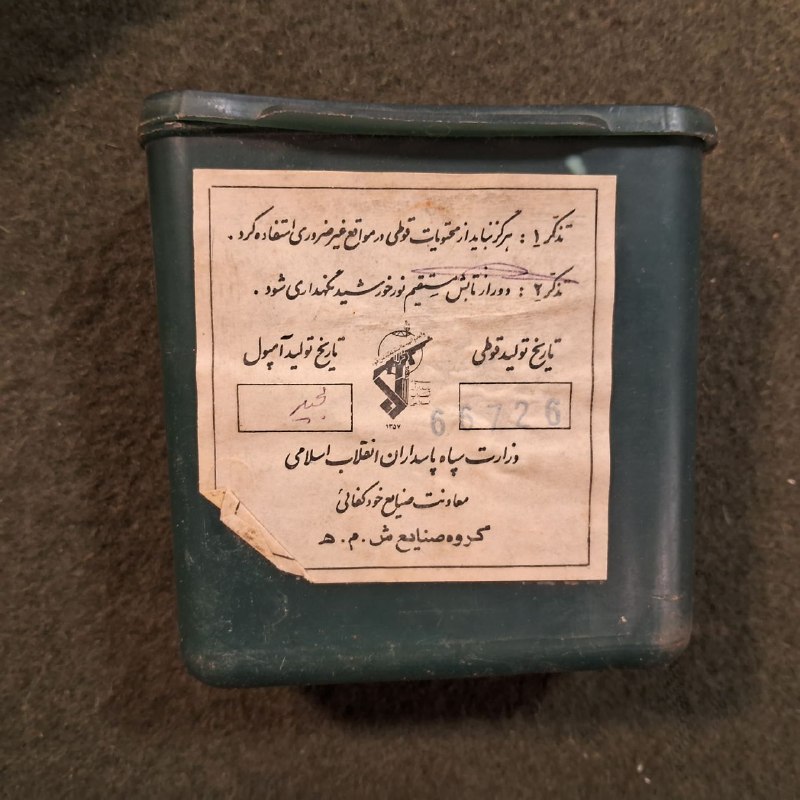 تذکّر ۱ : هرگز نباید از محتویات قوطی در مواقع غیر ضروری استفاده کرد .
تذکّر ۲ : دور از تابش مستقیم نور خورشید نگهداری شود .
تاریخ تولید قوطی
تاریخ تولید آمپول
66726
۱۳۵۷
وزارت سپاه پاسداران انقلاب اسلامی
معاونت صنایع خودکفائی
گروه صنایع ش . م . ه